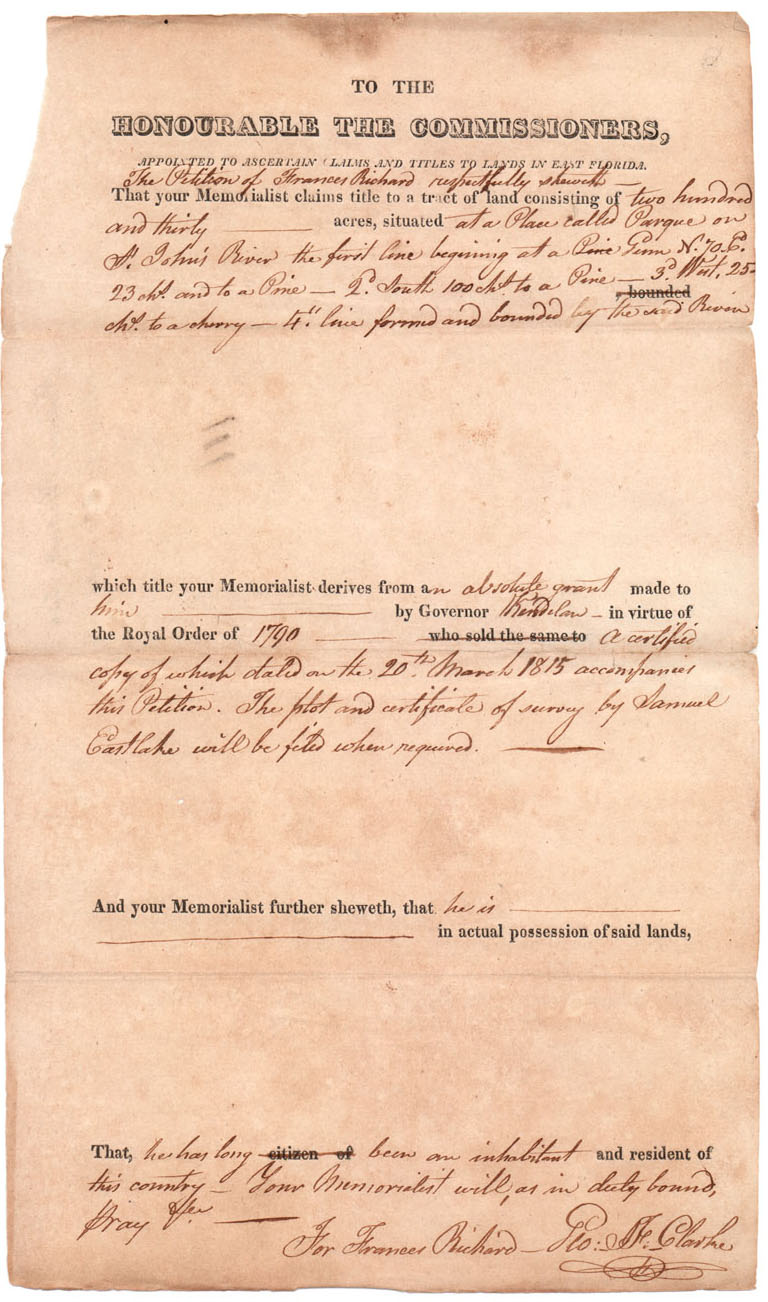 TO THE
HONOURABLE THE COMMISSIONERS,
APPOINTED TO ASCERTAIN CLAIMS AND TITLES TO LANDS IN EAST FLORIDA.
The Petition of Frances Richard respectfully sheweth —
That your Memorialist claims title to a tract of land consisting of two hundred
and thirty —— acres, situated at a Place called Parque on
St. John's River the first line beginning at a Pine N. 70. E.
23 chs. and to a Pine — 2d. South 100 chs. to a Pine — 3d. West, 25
, bounded
chs. to a cherry — 4th line formed and bounded by the said River
which title your Memorialist derives from an absolute grant made to
him —— by Governor Kindelan — in virtue of
the Royal Order of 1790 —— who sold the same to A certified
copy of which dated on the 20th. March 1815 accompanies
this Petition. The plot and certificate of survey by Samuel
Eastlake will be filed when required. ——
And your Memorialist further sheweth, that he is ——
—— in actual possession of said lands,
That, he has long citizen of been an inhabitant and resident of
this country — Your Memorialist will, as in duty bound,
pray &c. ——
For Frances Richard — Geo: J. F: Clarke